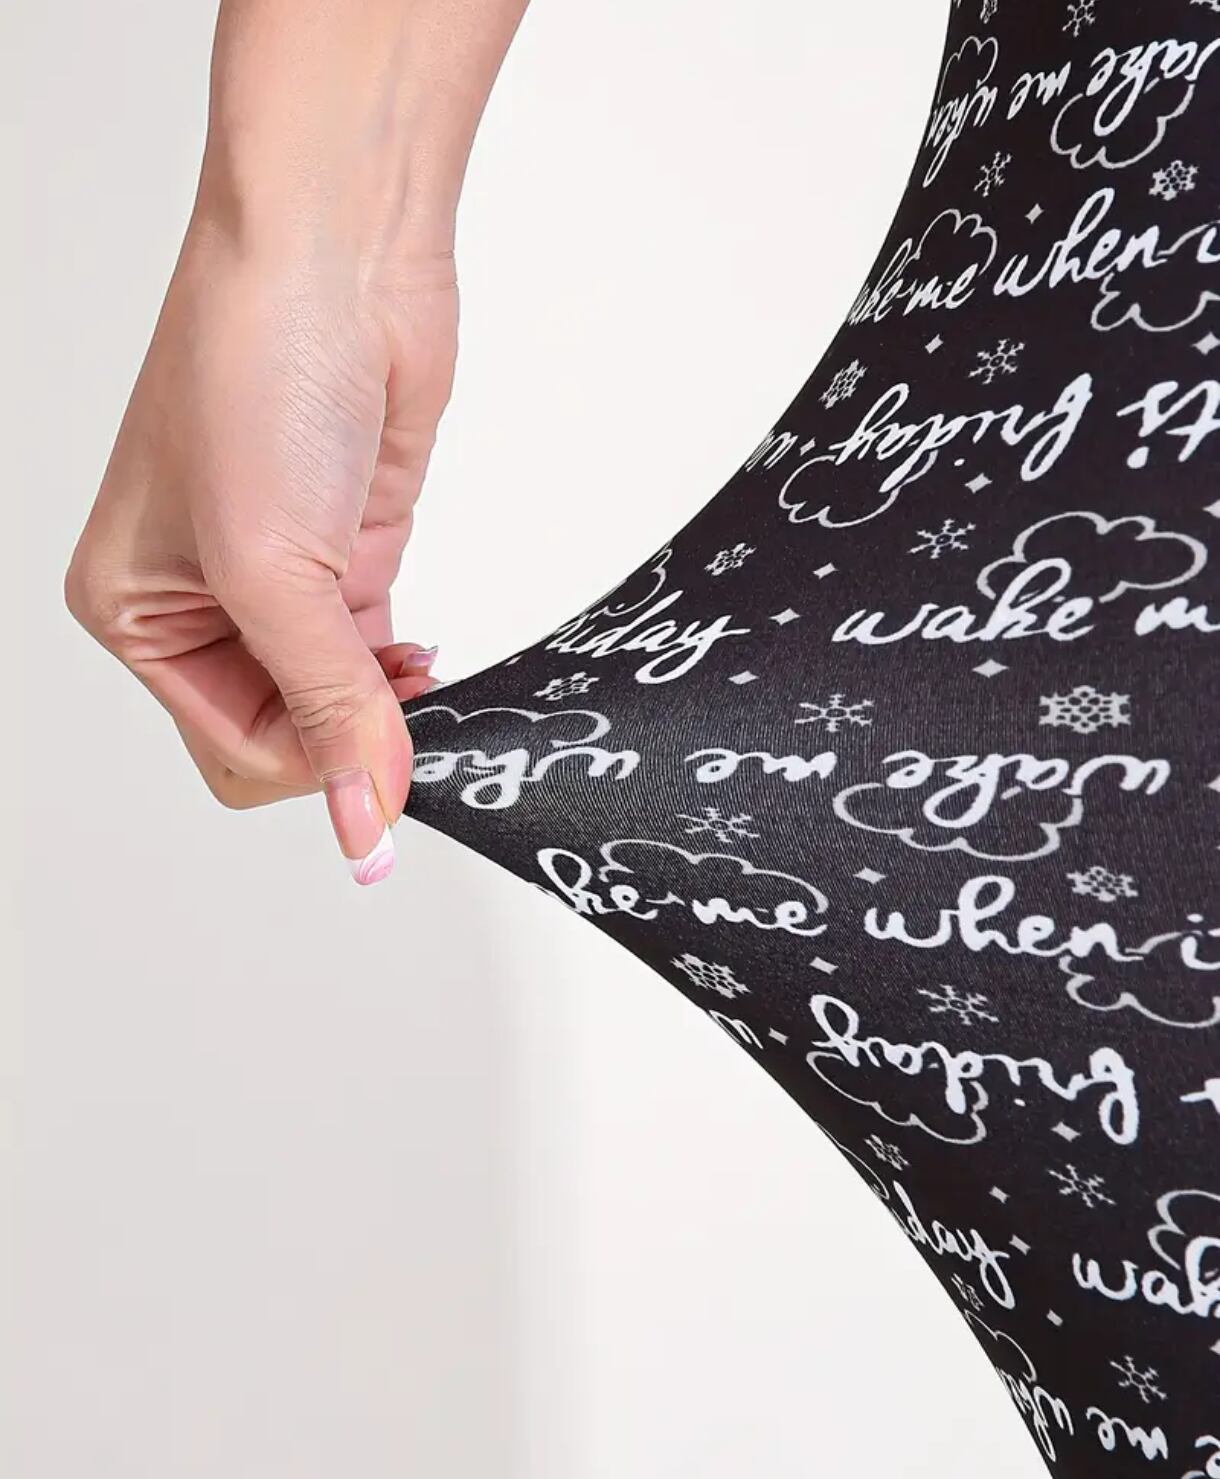 wake me when
wake me when i
friday its
friday wake m
wake me whe
ke me when it
friday
day wak
me wh